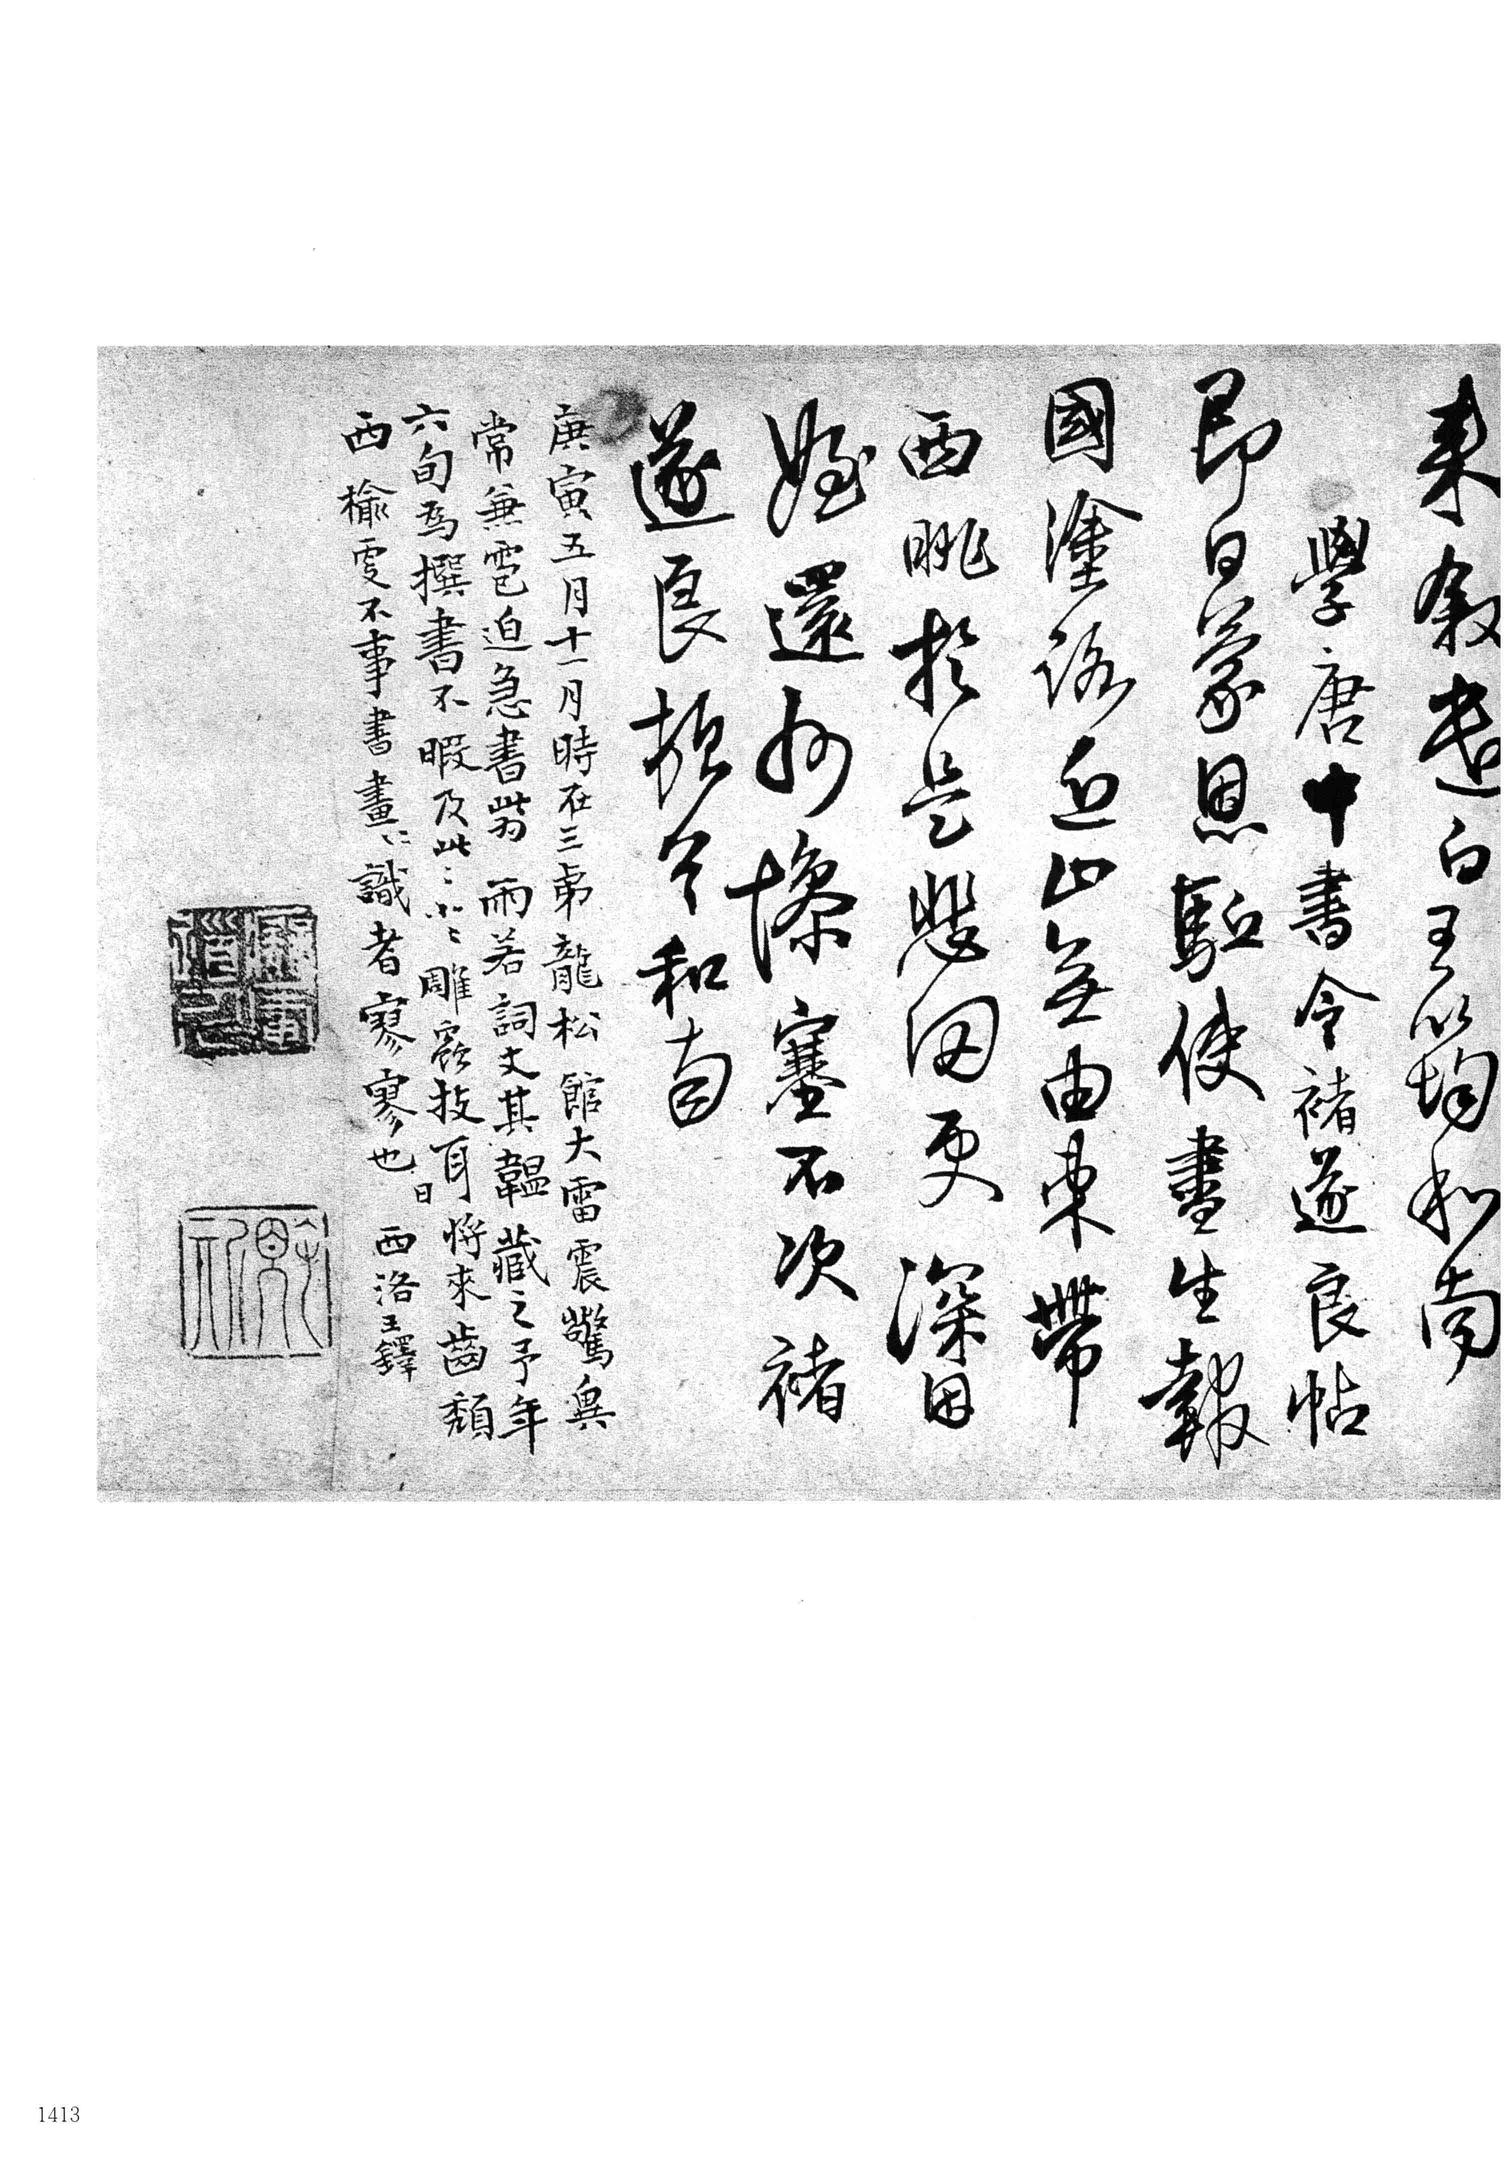 來敘遣白王筠和南
學唐中書令褚遂良帖
即日蒙恩駈使盡生報
國塗路近止無由束帶
西眺於是悲罔更深因
姪還州慘塞不次褚
遂良頓首和南
庚寅五月十一月時在三弟龍松館大雷震驚異
常兼雹迫急書此勞雨若詞文其韞藏之予年
六旬爲撰書不暇及此此小小雕蟲技耳將來齒頹
西榆更不事書畫畫識者寥寥也日
西洛王鐸
1413